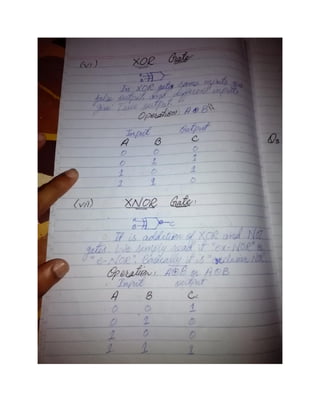 (vi) XOR Gate
In XOR gate, same inputs give
false output and different inputs
give True output.
Operation: A⊕B
Input Output
A B C
0 0 0
0 1 1
1 0 1
1 1 0
(vii) XNOR Gate:
It is addition of XOR and NOT
gates. We simply read it "ex-NOR" or
"e-NOR". Basically it is
Operation: A⊕B or A⊙B
Input output
A B C
0 0 1
0 1 0
1 0 0
1 1 1